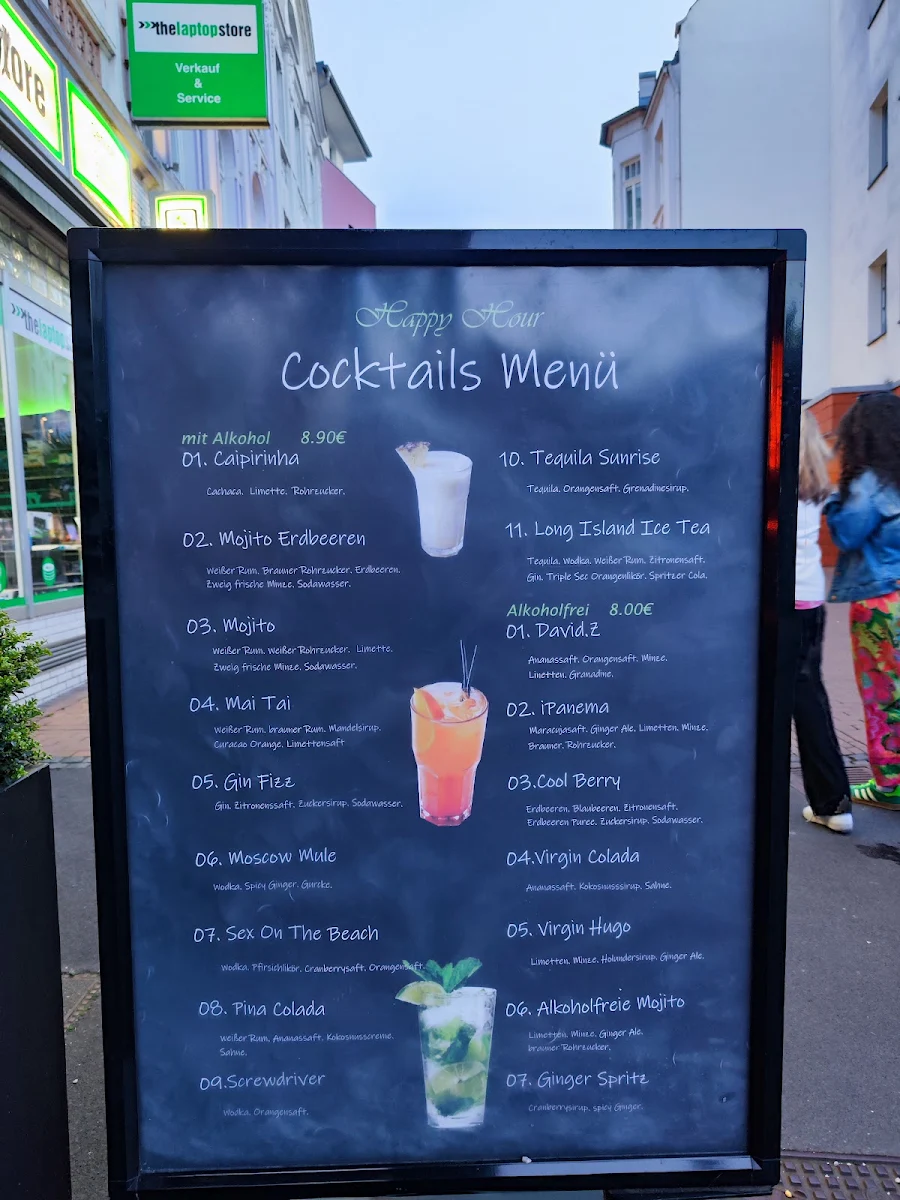 >>>thelaptopstore
Verkauf
&
Service
tore
>>>thelaptopst
Happy Hour
Cocktails Menü
mit Alkohol 8.90€
01. Caipirinha
Cachaca. Limette. Rohrzucker.
02. Mojito Erdbeeren
Weißer Rum. Brauner Rohrzucker. Erdbeeren.
Zweig frische Minze. Sodawasser.
03. Mojito
Weißer Rum. Weißer Rohrzucker. Limette.
Zweig frische Minze. Sodawasser.
04. Mai Tai
Weißer Rum. brauner Rum. Mandelsirup.
Curacao Orange. Limettensaft
05. Gin Fizz
Gin. Zitronenssaft. Zuckersirup. Sodawasser.
06. Moscow Mule
Wodka. Spicy Ginger. Gurcke.
07. Sex On The Beach
Wodka. Pfirsichlikör. Cranberrysaft. Orangensaft.
08. Pina Colada
Weißer Rum. Ananassaft. Kokosnusscreme.
Sahne.
09.Screwdriver
Wodka. Orangensaft.
10. Tequila Sunrise
Tequila. Orangensaft. Grenadinesirup.
11. Long Island Ice Tea
Tequila. Wodka. Weißer Rum. Zitronensaft.
Gin. Triple Sec Orangenlikör. Spritzer Cola.
Alkoholfrei 8.00€
01. David.Z
Ananassaft. Orangensaft. Minze.
Linetten. Granadine.
02. iPanema
Maracujasaft. Ginger Ale. Limetten. Minze.
Brauner. Rohrzucker.
03.Cool Berry
Erdbeeren. Blaubeeren. Zitronensaft.
Erdbeeren Puree. Zuckersirup. Sodawasser.
04.Virgin Colada
Ananassaft. Kokosnusssirup. Sahne.
05. Virgin Hugo
Limetten. Minze. Holundersirup. Ginger Ale.
06. Alkoholfreie Mojito
Limetten. Minze. Ginger Ale.
brauner Rohrzucker.
07. Ginger Spritz
Cranberrysirup. spicy Ginger.